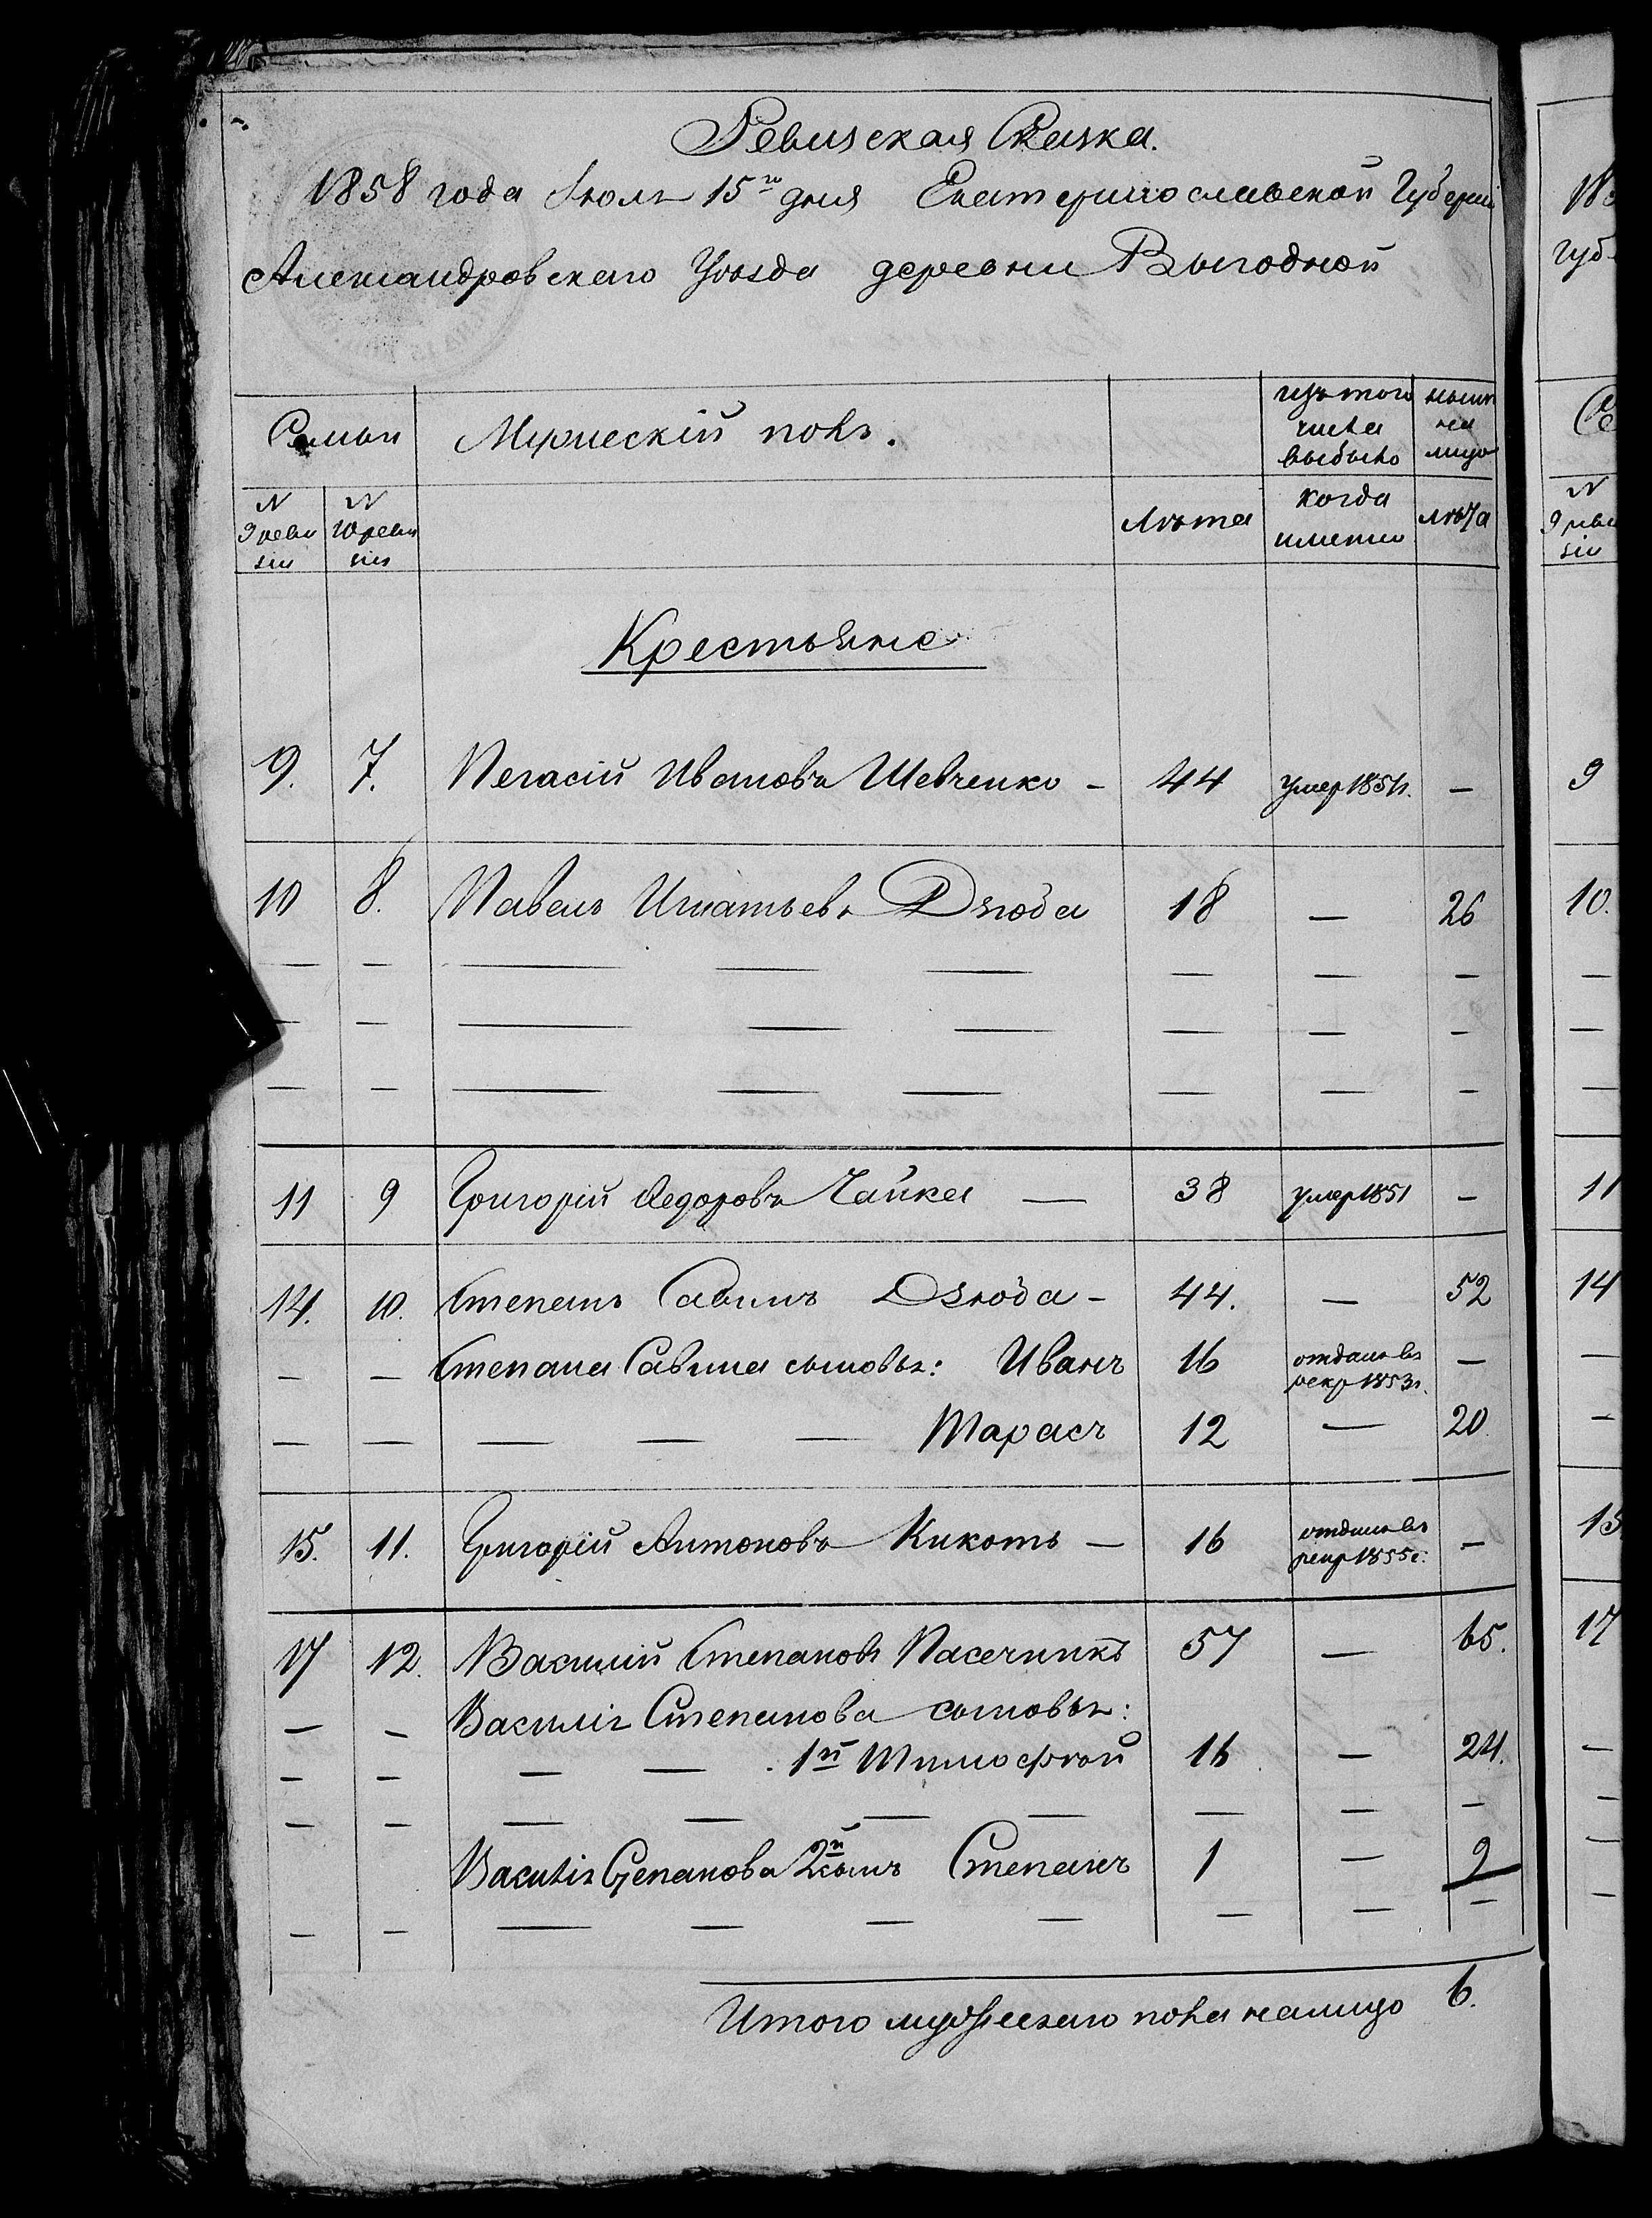 Ревизская Сказка.
1858 года Июля 15го дня Екатеринославской Губерніи
Александровскаго Уѣзда деревни Выгодной
Семьи Мужескій полъ. изъ того числа выбыло нынѣ на лицо
N 9 реви зіи N 10 реви зіи Лѣта когда именно лѣта
Крестьяне
9. 7. Пегасій Ивановъ Шевченко - 44 умер 1851г. —
10 8. Павелъ Игнатьевъ Дзюба 18 — 26
11 9 Григорій Федоровъ Чайка — 38 умер 1851 —
14. 10. Степанъ Савинъ Дзюба - 44. — 52
— — Степана Савина сыновья: Иванъ 16 отданъ въ рекр 1853г. —
— — — — — Тарасъ 12 — 20
15. 11. Григорій Антоновъ Кикоть — 16 отданъ въ рекр 1855г. —
17 12. Василій Степановъ Пасечникъ 57 — 65.
— — Василія Степанова сыновья:
— — — — 1й Тимофѣй 16 — 24.
Василія Степанова 2й сынъ Степанъ 1 — 9
Итого мужескаго пола налицо 6.
183
Губ
Се
N
9 реви
зіи
9
10.
11
14
15
17